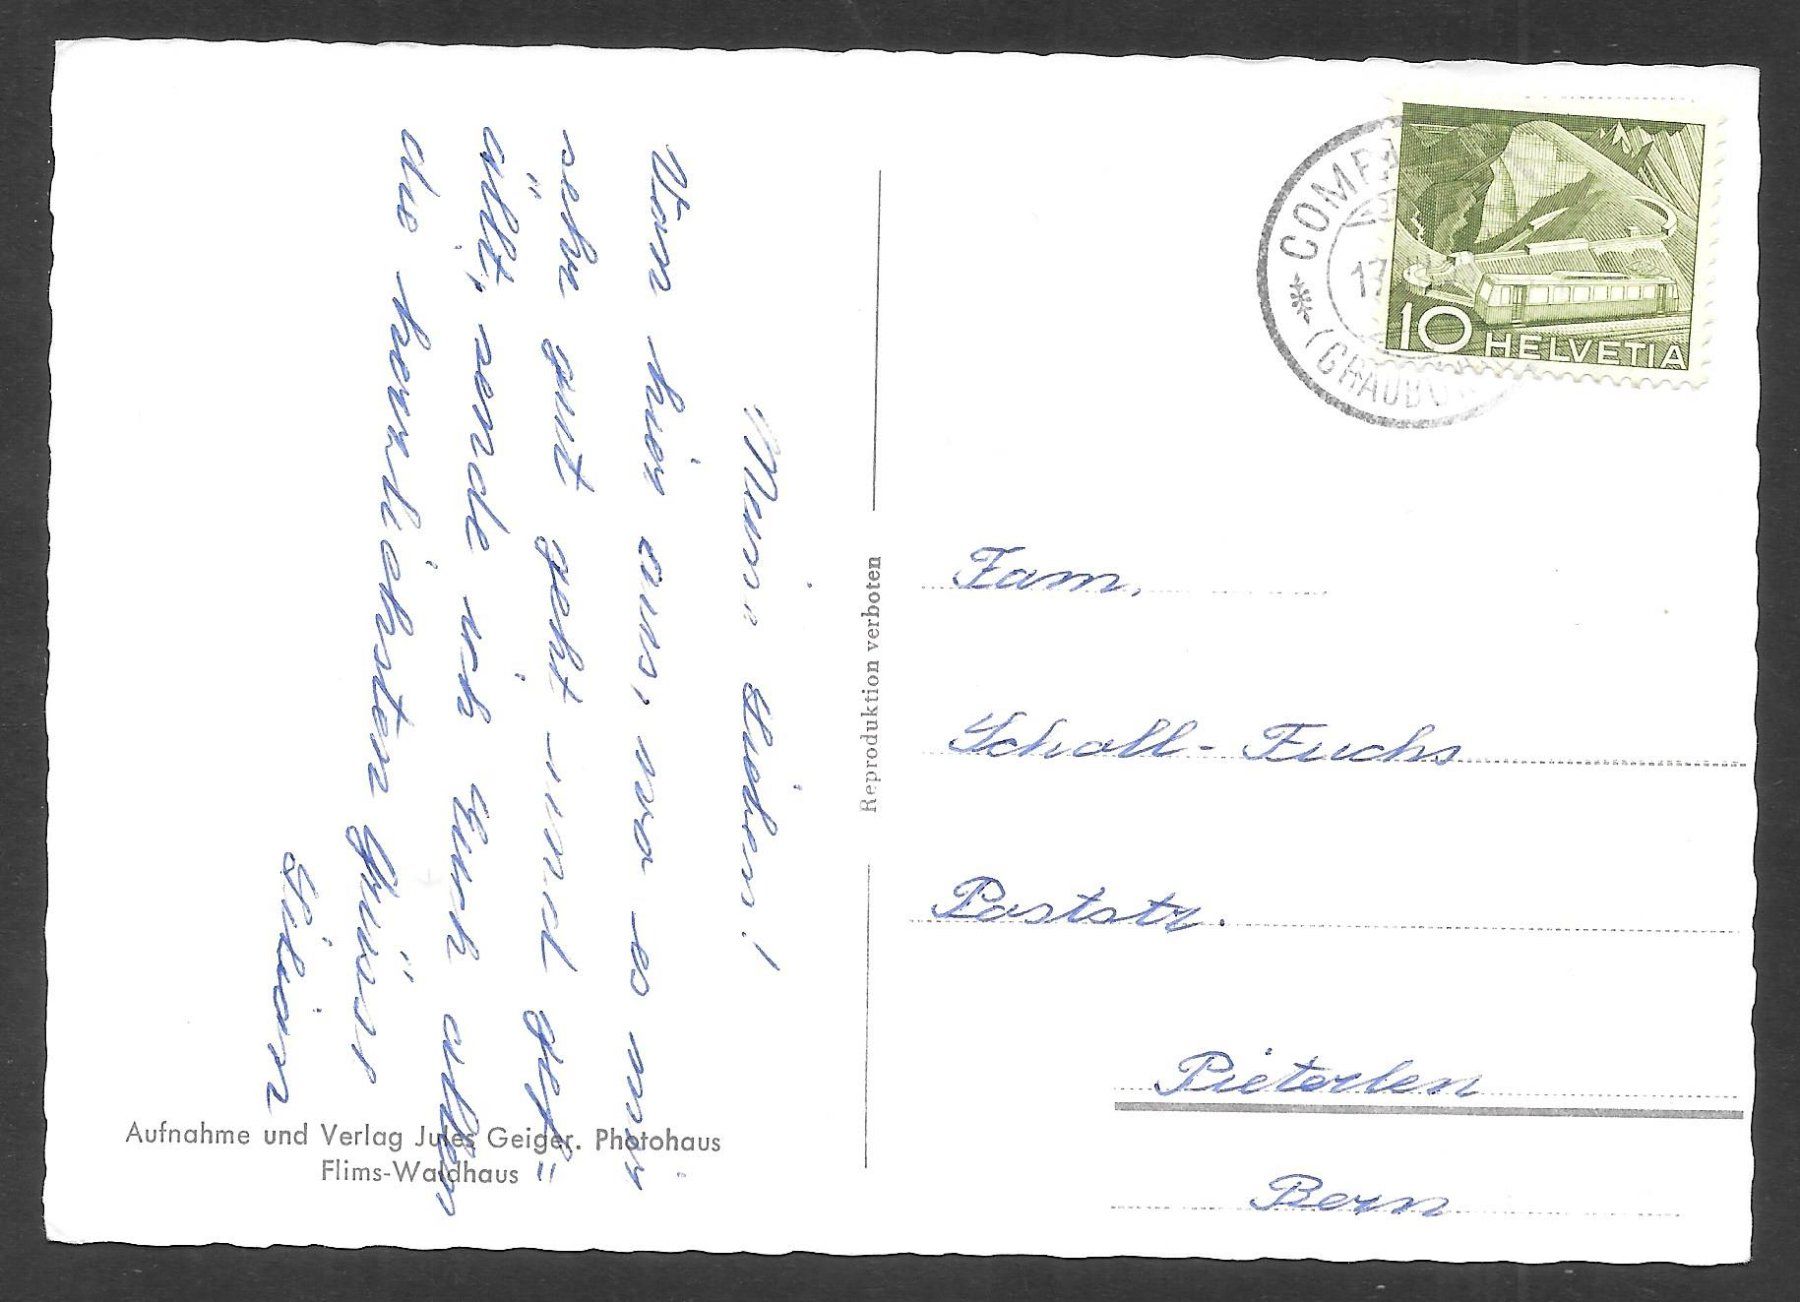 Meine Lieben!
Von hier aus, wo es mir
sehr gut geht und gef=
ällt, sende ich Euch allen
die herzlichsten Grüsse
Lilian
Aufnahme und Verlag Jules Geiger. Photohaus
Flims-Waldhaus
Reproduktion verboten
17
10 HELVETIA
Fam.
Scholl-Fuchs
Poststr.
Pieterlen
Bern